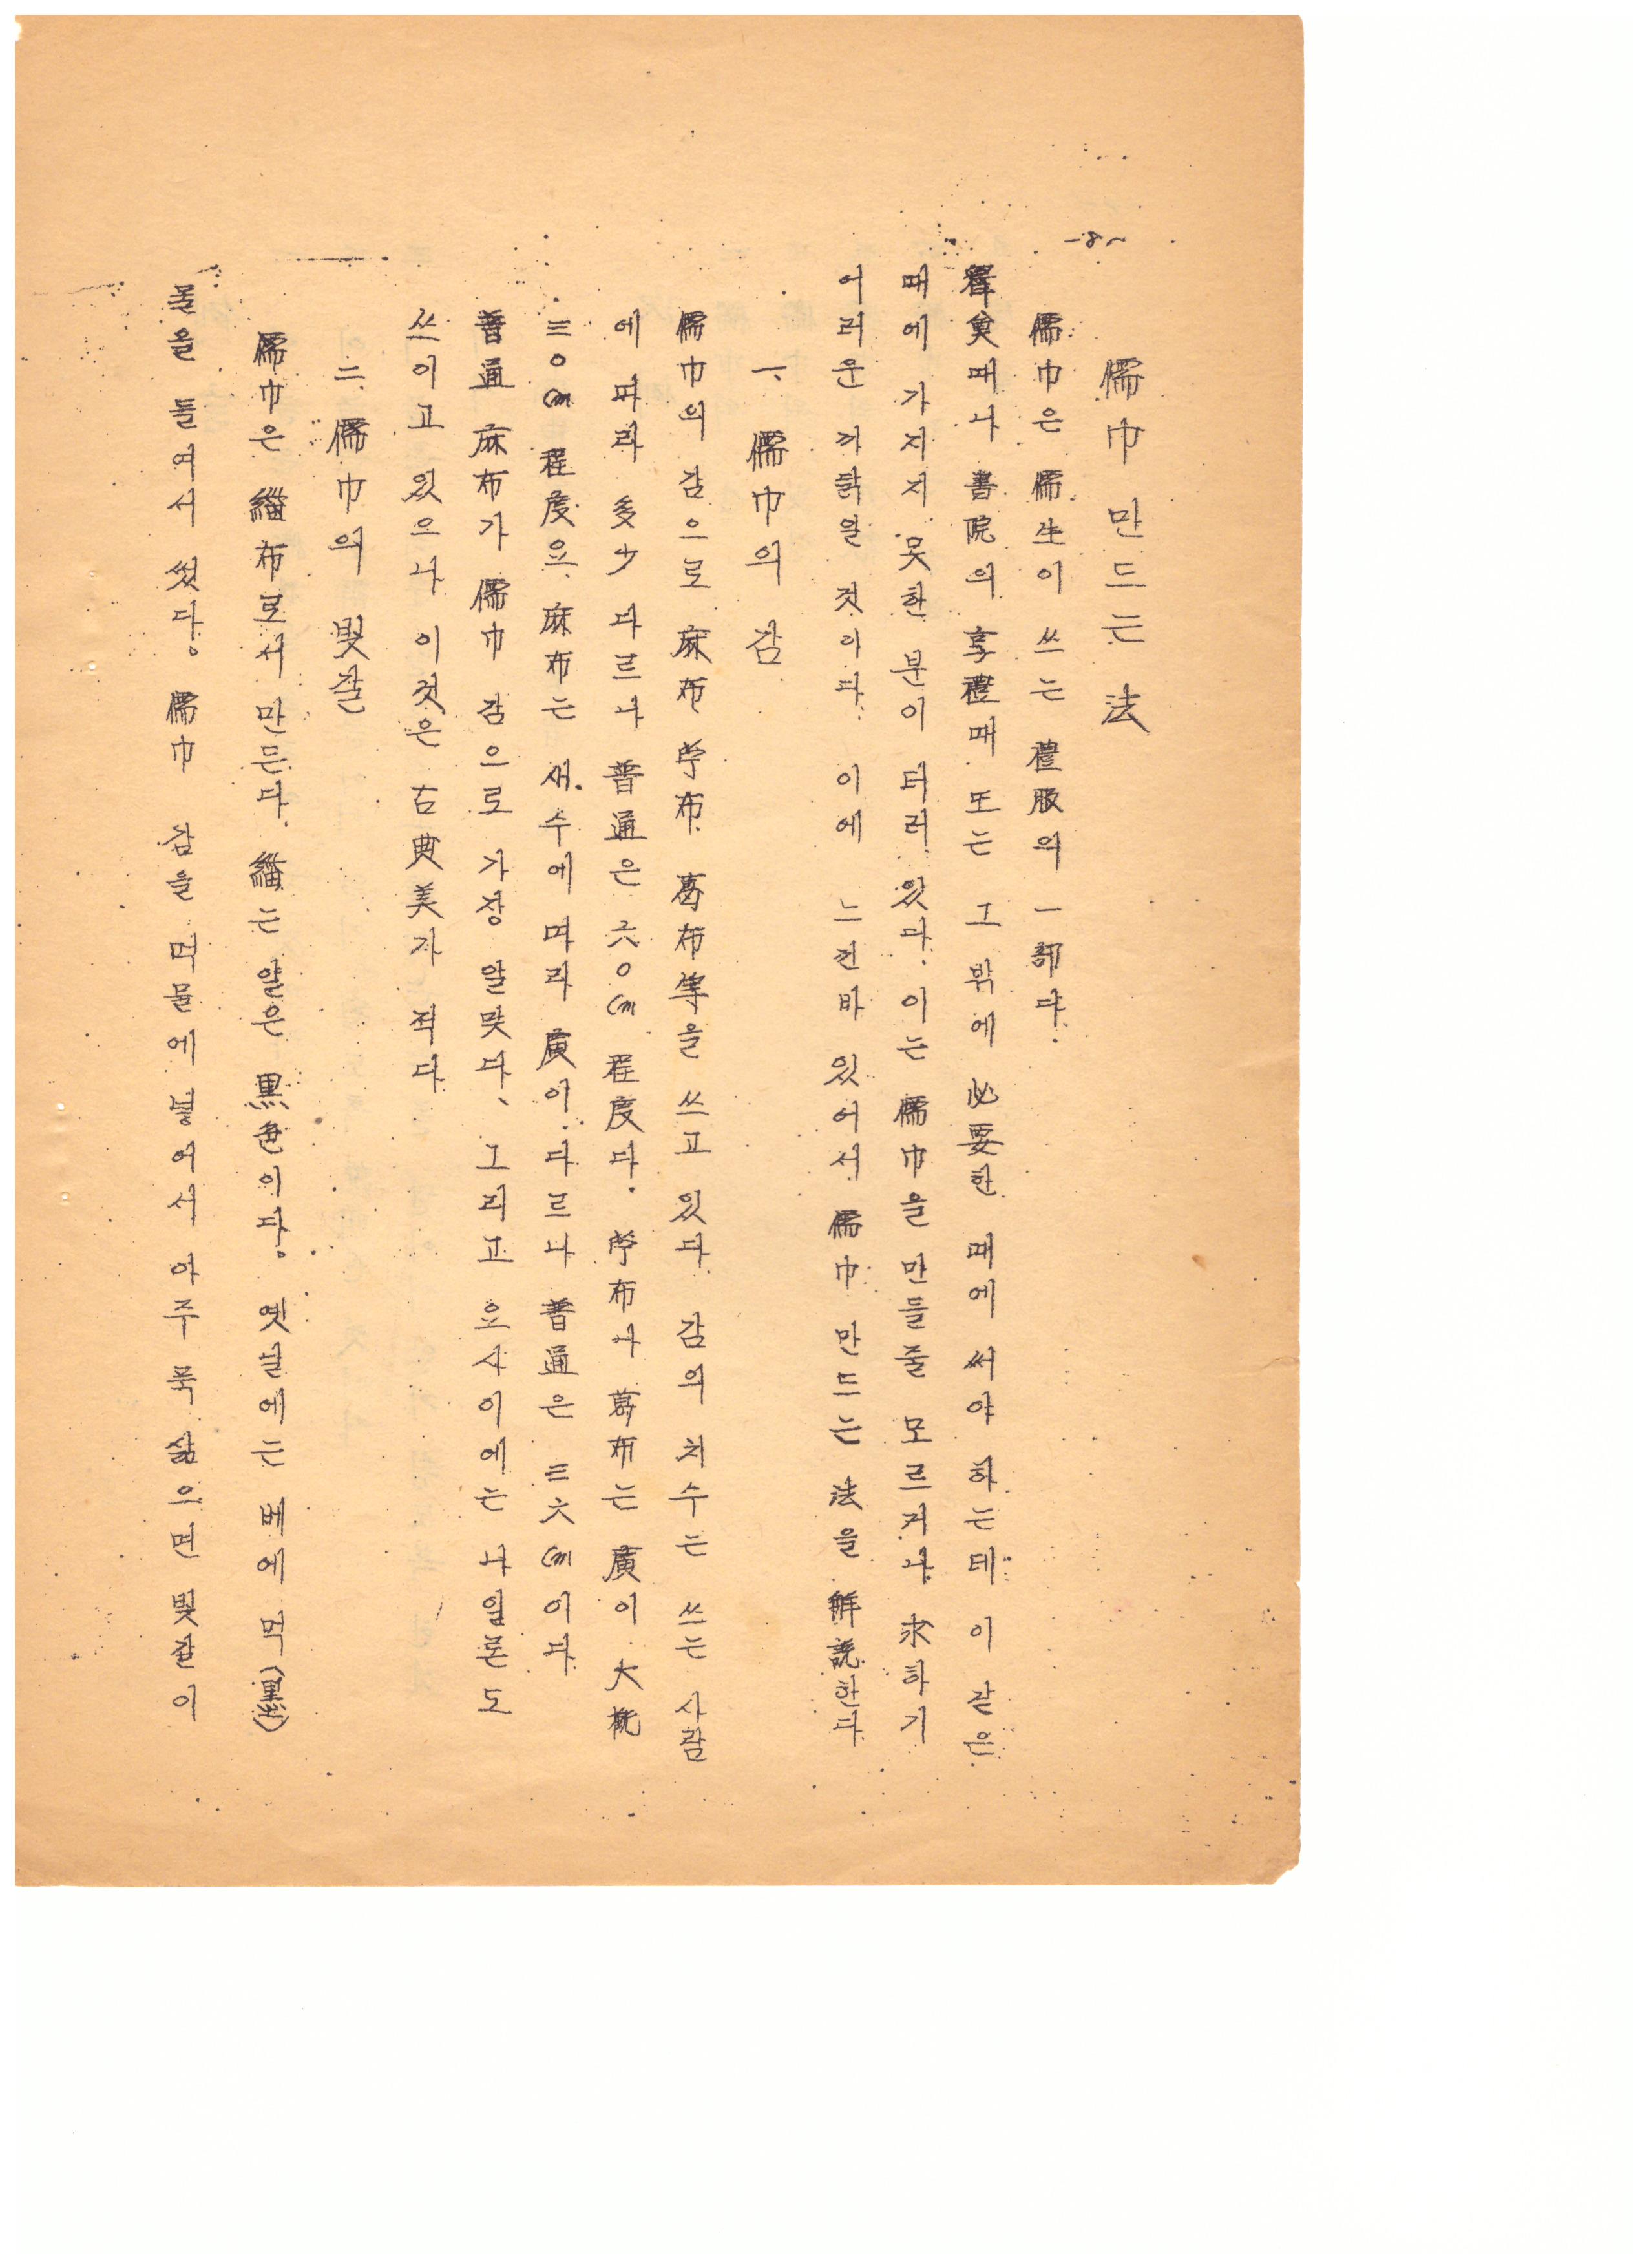 -8-
儒巾 만드는 法
儒巾은 儒生이 쓰는 禮服의 一部다.
釋奠때나 書院의 享禮때 또는 그 밖에 必要한 때에 써야 하는데 이 같은
때에 가지지 못한 분이 더러 있다. 이는 儒巾을 만들줄 모르거나 求하기
어려운 까닭일 것이다. 이에 느낀바 있어서 儒巾 만드는 法을 解説한다
一. 儒巾의 감
儒巾의 감으로 麻布 苧布 葛布等을 쓰고 있다 감의 치수는 쓰는 사람
에 따라 多少 다르나 普通은 六〇cm 程度다. 苧布나 葛布는 廣이 大槪
三〇cm 程度요 麻布는 새수에 따라 廣이 다르나 普通은 三六cm이다
普通 麻布가 儒巾 감으로 가장 알맞다、 그리고 요사이에는 나일론도
쓰이고 있으나 이것은 古典美가 적다
二. 儒巾의 빛갈
儒巾은 緇布로서 만든다. 緇는 얕은 黒色이다。 옛날에는 베에 먹(墨)
물을 들여서 썼다。 儒巾 감을 먹물에 넣어서 아주 푹 삶으면 빛갈이